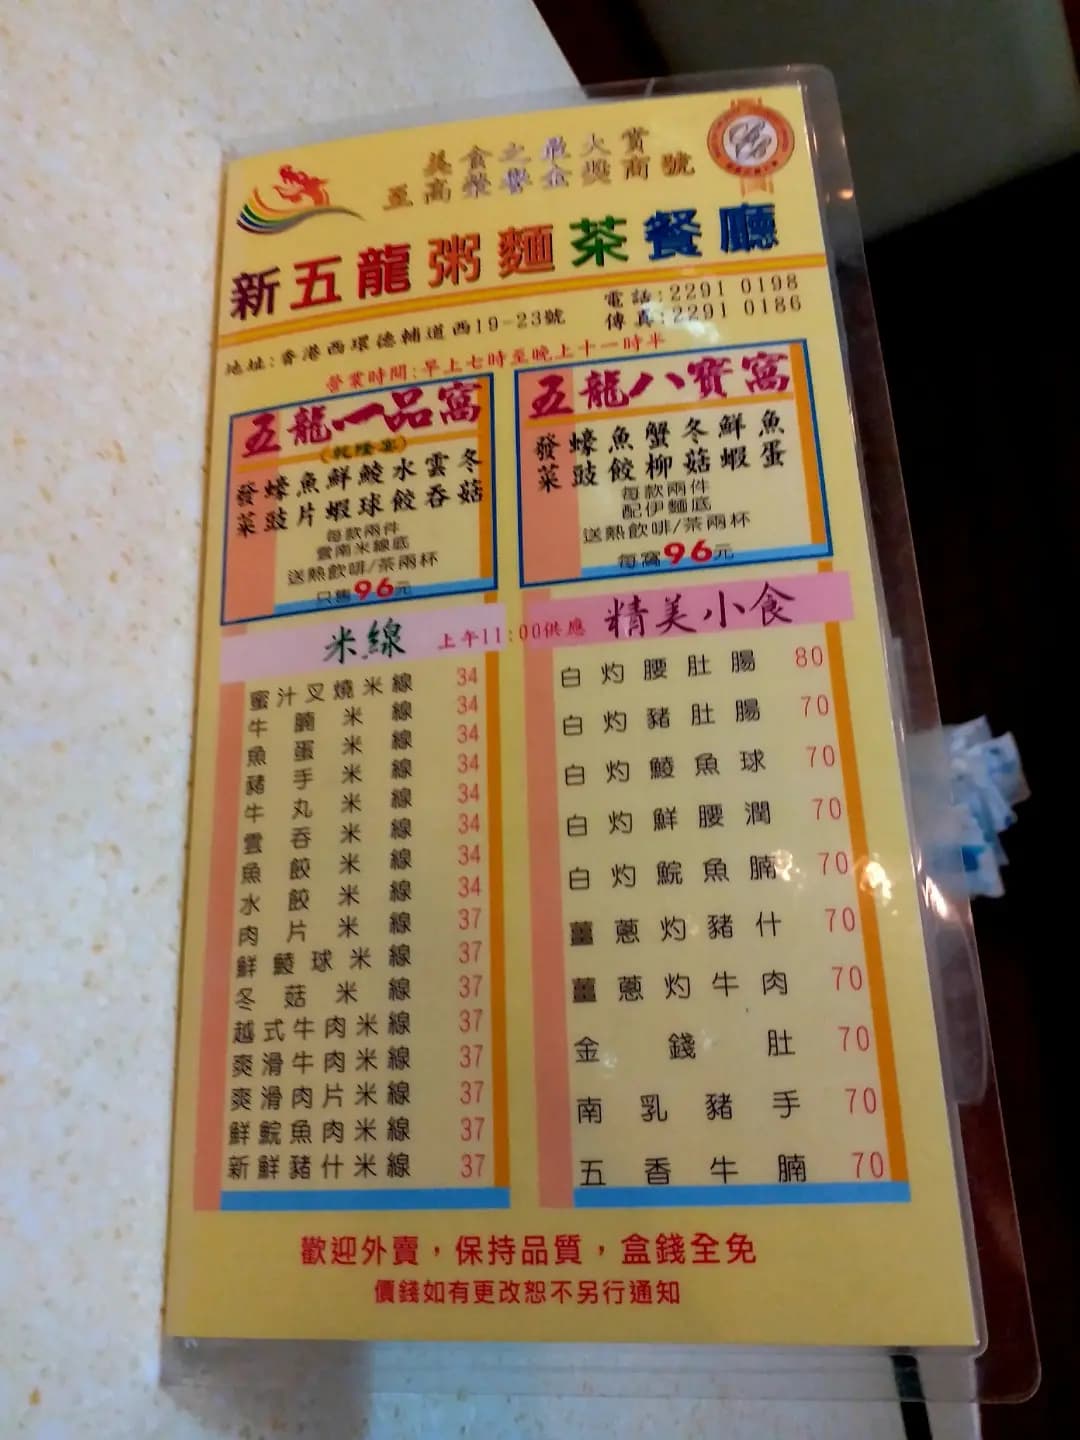 美食之最大賞
至高榮譽金獎商號
新五龍粥麵茶餐廳
地址:香港西環德輔道西19-23號
電話:2291 0198
傳真:2291 0186
營業時間:早上七時至晚上十一時半
五龍一品窩
(乾隆宴)
發蠔魚鮮鯪水雲冬
菜豉片蝦球餃吞菇
每款兩件
雲南米線底
送熱飲啡/茶兩杯
只售96元
五龍八寶窩
發蠔魚蟹冬鮮魚
菜豉餃柳菇蝦蛋
每款兩件
配伊麵底
送熱飲啡/茶兩杯
每窩96元
米線
上午11:00供應
精美小食
蜜汁叉燒米線 34
牛腩米線 34
魚蛋米線 34
豬手米線 34
牛丸米線 34
雲吞米線 34
魚餃米線 34
水餃米線 34
肉片米線 37
鮮鯪球米線 37
冬菇米線 37
越式牛肉米線 37
爽滑牛肉米線 37
爽滑肉片米線 37
鮮鯇魚肉米線 37
新鮮豬什米線 37
白灼腰肚腸 80
白灼豬肚腸 70
白灼鯪魚球 70
白灼鮮腰潤 70
白灼鯇魚腩 70
薑蔥灼豬什 70
薑蔥灼牛肉 70
金錢肚 70
南乳豬手 70
五香牛腩 70
歡迎外賣，保持品質，盒錢全免
價錢如有更改恕不另行通知